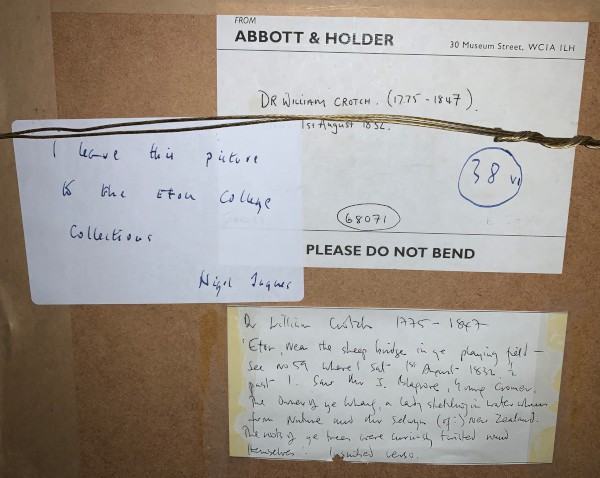 FROM
ABBOTT & HOLDER
30 Museum Street, WC1A 1LH
DR WILLIAM CROTCH. (1775-1847).
1st August 1832.
38 VI
68071
PLEASE DO NOT BEND
I leave this picture
to the Eton College
Collections
Nigel Jaques
Dr William Crotch 1775-1847
'Eton, near the sheep bridge in ye playing field -
see no 59 where I sat 1st August 1832 ½
past 1. Saw Mr J. Blagrove, Young Cromer,
The owner of ye, a lady sketching in water colours
from Nature and Mr Selwyn (of:) New Zealand.
The roots of ye trees were curiously twisted round
themselves'. Inscribed verso.